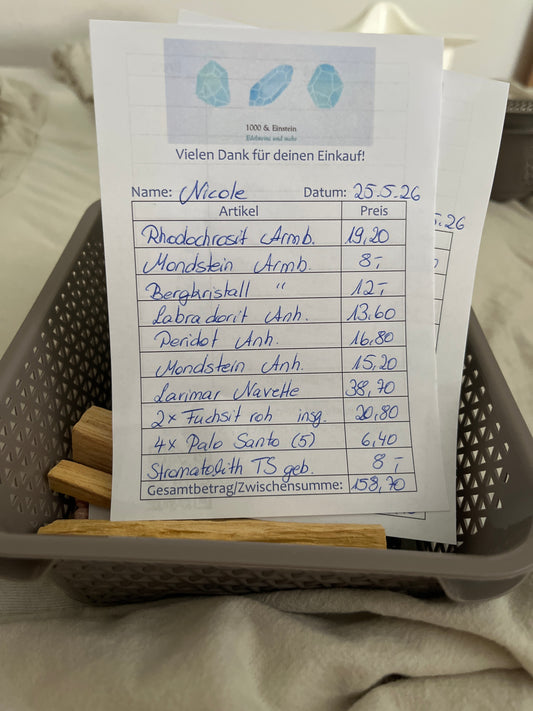 1000 & Einstein
Edelsteine und mehr
Vielen Dank für deinen Einkauf!
Name: Nicole Datum: 25.5.26
Artikel Preis
Rhodochrosit Armb. 19,20
Mondstein Armb. 8,-
Bergkristall " 12,-
Labradorit Anh. 13,60
Peridot Anh. 16,80
Mondstein Anh. 15,20
Larimar Navette 38,70
2x Fuchsit roh insg. 20,80
4x Palo Santo (5) 6,40
Stromatolith TS geb. 8,-
Gesamtbetrag/Zwischensumme: 158,70
5.26